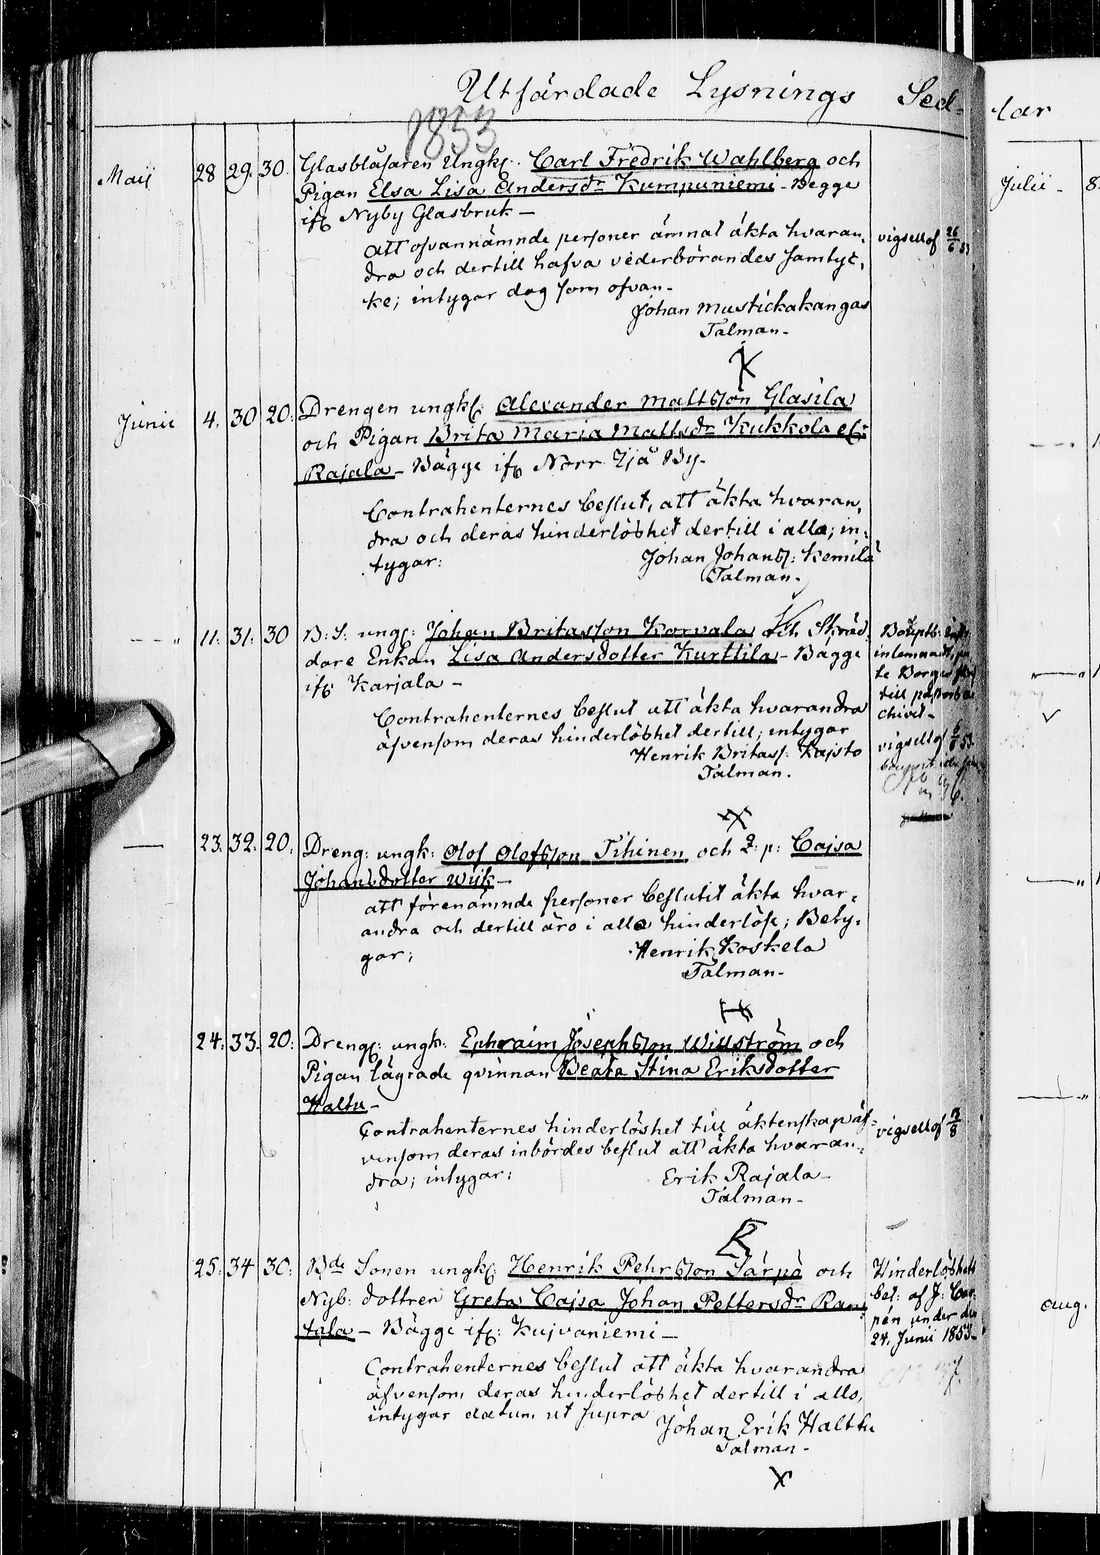 Utfärdade Lysnings Sed-
1853
Maij 28 29. 30. Glasblåsaren Ungk. Carl Fredrik Wahlberg och
Pigan Elsa Lisa Andersdr Kumpuniemi - Begge
ifr Nyby Glasbruk -
att ofvannämnde personer ämnat äkta hvaran-
dra och dertill hafva vederbörandes samtyc-
ke; intygar dag som ofvan -
Johan Mustickakangas
Talman -
X
vigsell af 26/6 53
Junii 4. 30 20. Drengen ungk: Alexander Mattsson Glasila
och Pigan Brita Maria Mattsdr Kukkola elr
Rajala - Bägge ifr Norr Ijå By -
Contrahenternes beslut, att äkta hvaran-
dra och deras hinderlöshet dertill i allo; in-
tygar: Johan Johanss: Kemilä
Talman.
- - " 11. 31. 30 B: S: ungk: Johan Britasson Korvala och Skräd-
dare Enkan Lisa Andersdotter Kurttila - Bägge
ifr Karjala -
Contrahenternes beslut att äkta hvarandra
äfvensom deras hinderlöshet dertill; intygar
Henrik Britass: Kajsto
Talman.
X
till
chivet -
vigsell af
23. 32. 20. Dreng: ungk: Olof Olofsson Tihinen och I: p: Cajsa
Johansdotter Wiik -
att förenämnde personer beslutit äkta hvar-
andra och dertill äro i allo hinderlöse; Bety-
gar; Henrik Koskela
Talman -
24. 33. 20. Dreng: ungk: Ephraim Josephsson Willström och
Pigan lägrade qvinnan Beata Stina Eriksdotter
Haltu -
Contrahenternes hinderlöshet till äktenskap äf-
vensom deras inbördes beslut att äkta hvaran-
dra; intygar: Erik Rajala -
Talman -
vigsell af
25. 34 30. Bde Sonen ungk: Henrik Pehrsson Särpä och
Nyb: dottren Greta Cajsa Johan Pettersdr Ran-
tala - Bägge ifr: Kujvaniemi -
Contrahenternes beslut att äkta hvarandra
äfvensom deras hinderlöshet dertill i allo,
intygar datum ut supra
Johan Erik Halttu
Talman -
X
Hinderlöshets
bet: af J: Cas-
pén under den
24. Junii 1853 -
lar
Julii - 8.
aug.